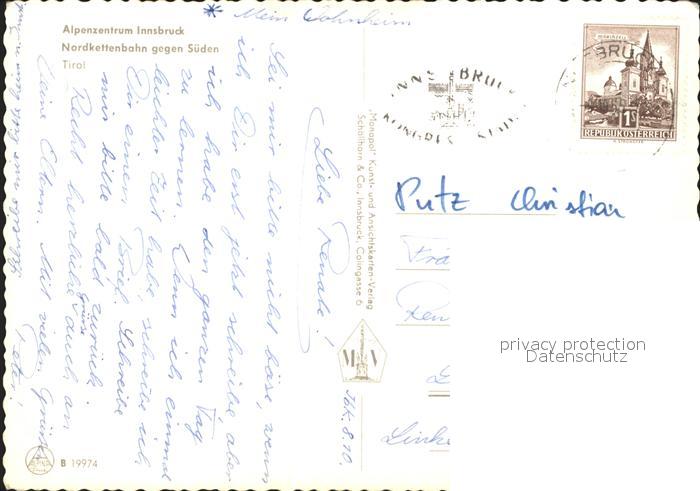 * Mein Wohnheim
Alpenzentrum Innsbruck
Nordkettenbahn gegen Süden
Tirol
Liebe Renate!
Sei mir bitte nicht böse, wenn
ich Dir erst jetzt schreibe aber
ich habe den ganzen Tag
zu lernen. Wenn ich einmal
leichter Zeit habe, schreibe ich
Dir einen Brief. Schreibe
mir bitte bald zurück.
Recht herzliche Grüsse auch an
Deine Eltern. Mit vielen Grüßen
Peter!
Ibk. 8.10.
B 19974
"Monopol" Kunst- und Ansichtskarten-Verlag
Schöllhorn & Co., Innsbruck, Colingasse 6
M V
INNSBRUCK
KONGRESS
MARIAZELL
1S
REPUBLIK ÖSTERREICH
Putz Christian
Frä
Ren
Linke
privacy protection
Datenschutz